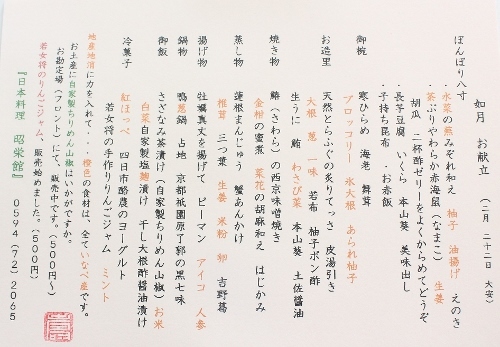 如月 お献立 (二月 二十二日 大安)
ぼんぼり八寸
・水菜の煮みぞれ和え 柚子 油揚げ えのき
・茶ぶりやわらか赤海鼠(なまこ) 生姜
胡瓜 二杯酢ゼリーをよくからめてどうぞ
・長芋豆腐 いくら 本山葵 美味出し
・子持ち昆布 ・お赤飯
御椀 寒ひらめ 海老 舞茸
ブロッコリー 氷大根 あられ柚子
お造里 天然とらふぐの炙りてっさ 皮湯引き
大根 葱 一味 若布 柚子ポン酢
生うに 鮪 わさび菜 本山葵 土佐醤油
焼き物 鰆(さわら)の西京味噌焼き
金柑の蜜煮 菜花の胡麻和え はじかみ
蒸し物 蓮根まんじゅう 蟹あんかけ
椎茸 三つ葉 生姜 米粉 卵 吉野葛
揚げ物 牡蠣真丈を揚げて ピーマン アイコ 人参
鍋物 鴨葱鍋 占地 京都祇園原了郭の黒七味
御飯 さざなみ茶漬け(自家製ちりめん山椒) お米
白菜自家製塩麹漬け 干し大根酢醤油漬け
冷菓子 紅ほっぺ 四日市酪農のヨーグルト
若女将の手作りりんごジャム ミント
地産地消に力を入れて・・・橙色の食材は、全ていなべ産です。
お土産に自家製ちりめん山椒はいかがですか。
お勘定場(フロント)にて、販売中です。(500円〜)
若女将のりんごジャム、販売始めました。(500円)
『日本料理 昭栄館』 0594(72)2065